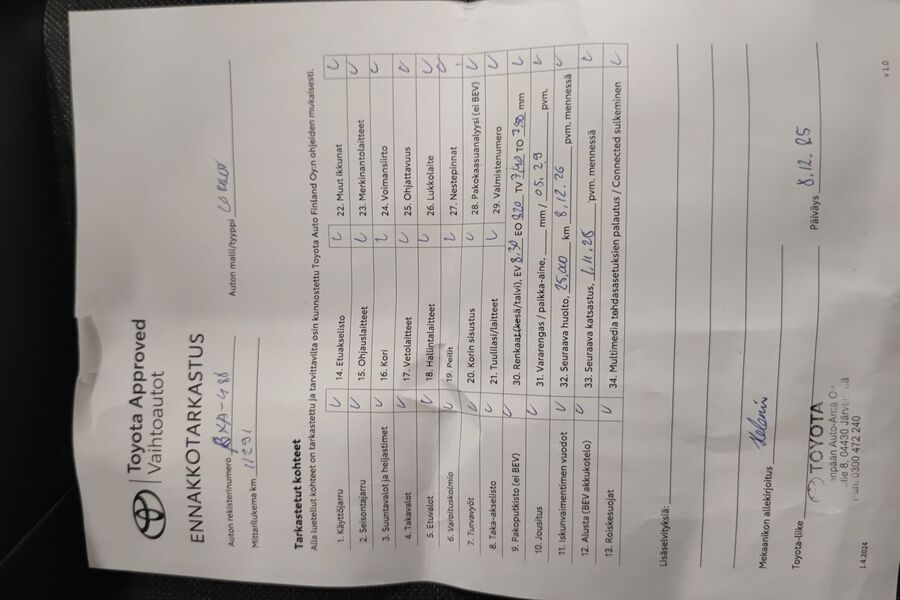 Toyota Approved
Vaihtoautot
ENNAKKOTARKASTUS
Auton rekisterinumero BXA-486 Auton malli/tyyppi
Mittarilukema km 11291
Tarkastetut kohteet
Alla luetellut kohteet on tarkastettu ja tarvittavilta osin kunnostettu Toyota Auto Finland Oy:n ohjeiden mukaisesti.
1. Käyttöjarru
2. Seisontajarru
3. Suuntavalot ja heijastimet
4. Takavalot
5. Etuvalot
6. Varoituskolmio
7. Turvavyöt
8. Taka-akselisto
9. Pakoputkisto (ei BEV)
10. Jousitus
11. Iskunvaimentimen vuodot
12. Alusta (BEV akkukotelo)
13. Roiskesuojat
14. Etuakselisto
15. Ohjauslaitteet
16. Kori
17. Vetolaitteet
18. Hallintalaitteet
19. Peilit
20. Korin sisustus
21. Tuulilasi/laitteet
22. Muut ikkunat
23. Merkinantolaitteet
24. Voimansiirto
25. Ohjattavuus
26. Lukkolaite
27. Nestepinnat
28. Pakokaasuanalyysi (ei BEV)
29. Valmistenumero
30. Renkaat (kesä/talvi), EV 8,30 EO 8,20 TV 7,40 TO 7,50 mm
31. Vararengas / paikka-aine, mm / 05.29 pvm.
32. Seuraava huolto, 25,000 km 8.12.26 pvm. mennessä
33. Seuraava katsastus, 1.11.28 pvm. mennessä
34. Multimedia tehdasasetuksien palautus / Connected sulkeminen
Lisäselvityksiä:
Mekaanikon allekirjoitus
Toyota-liike TOYOTA Päiväys 8.12.25
Auto-Arita
8, 04430
0300 472 240
1.4.2024 v 1.0